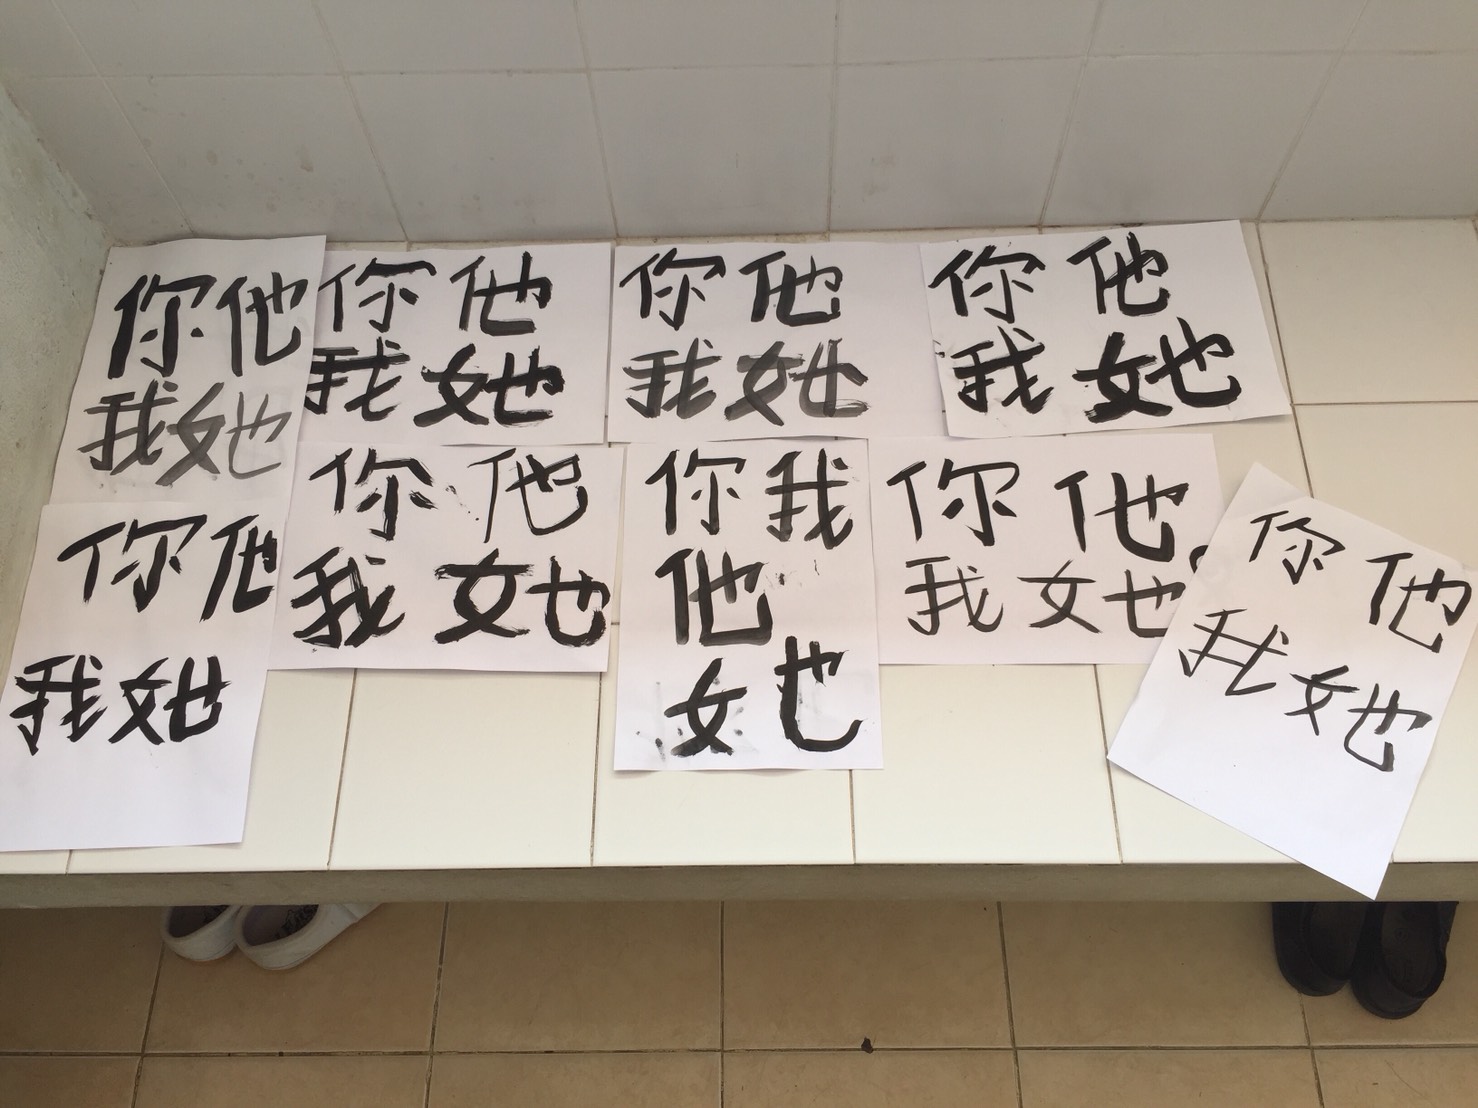 你他
我她
你他
我她
你他
我她
你他
我她
你他
我她
你他
我她
你我
他
她
你他
我她
你他
我她